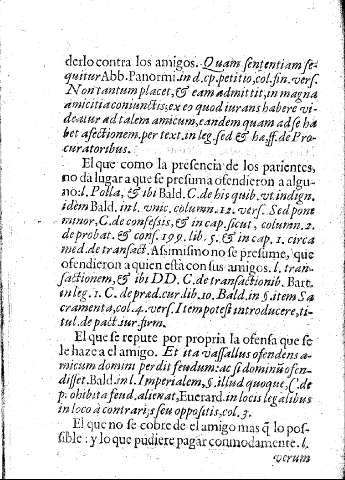 derlo contra los amigos. Quam sententiam se-
quitur Abb. Panormi. in d. cp. petitio, col. fin. vers.
Non tantum placet, & eam admittit, in magna
amicitia coniunctis; ex eo quod iurans habere vi-
deatur ad talem amicum, eandem quam ad se ha
bet afectionem. per text. in leg. sed & hæ. ff. de Pro-
curatoribus.
El que como la presencia de los parientes,
no da lugar a que se presuma ofendieron a algu-
no: l. Polla, & ibi Bald. C. de his quib. vt indign.
idem Bald. in l. vnic. column. 12. vers. Sed pone
minor, C. de confessis, & in cap. sicut, column. 2.
de probat. & cons. 199. lib. 5. & in cap. 1. circa
med. de transact. Assimismo no se presume, que
ofendieron a quien està con sus amigos. l. tran-
sactionem, & ibi DD. C. de transactionib. Bart.
in leg. 1. C. de præd. cur. lib. 10. Bald. in §. item Sa
cramenta, col. 4. vers. Item potest introducere, ti-
tul. de pact. iur. firm.
El que se repute por propria la ofensa que se
le haze a el amigo. Et ita vassallus ofendens a-
micum domini perdit feudum: ac si dominũ ofen-
disset. Bald. in l. Imperialem, §. illud quoque, C. de
p. ohibita feud. alienat, Euerard. in locis legalibus
in loco à contrari; seu oppositis, col. 3.
El que no se cobre de el amigo mas q̃ lo pos-
sible: y lo que pudiere pagar conmodamente. l.
verum